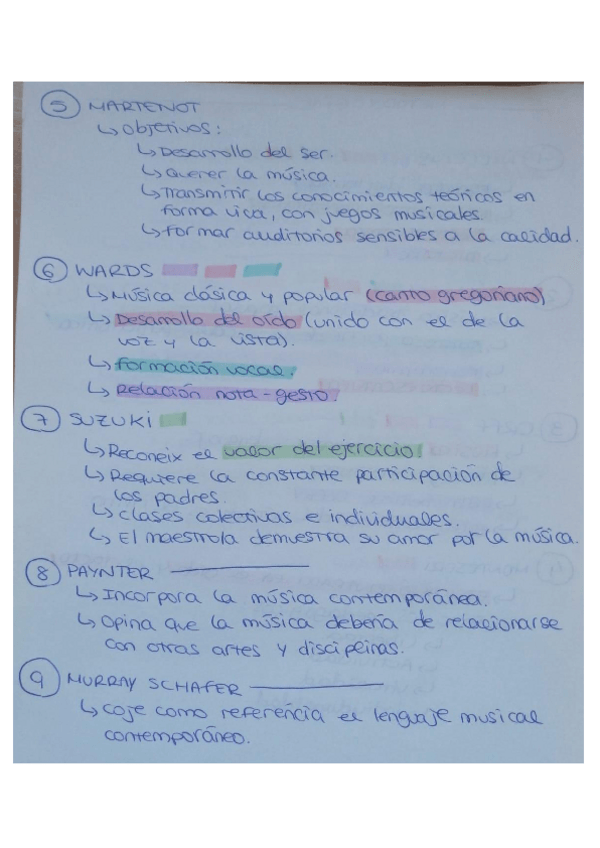 5 MARTENOT
↳ Objetivos:
↳ Desarrollo del ser.
↳ Querer la música.
↳ Transmitir los conocimientos teóricos en
forma viva, con juegos musicales.
↳ Formar auditorios sensibles a la calidad.
6 WARDS
↳ Música clásica y popular (canto gregoriano)
↳ Desarrollo del oído (unido con el de la
voz y la vista).
↳ Formación vocal.
↳ Relación nota-gesto.
7 SUZUKI
↳ Reconeix el valor del ejercicio.
↳ Requiere la constante participación de
los padres.
↳ Clases colectivas e individuales.
↳ El maestro/a demuestra su amor por la música.
8 PAYNTER
↳ Incorpora la música contemporánea.
↳ Opina que la música debería de relacionarse
con otras artes y disciplinas.
9 MURRAY SCHAFER
↳ Coje como referencia el lenguaje musical
contemporáneo.